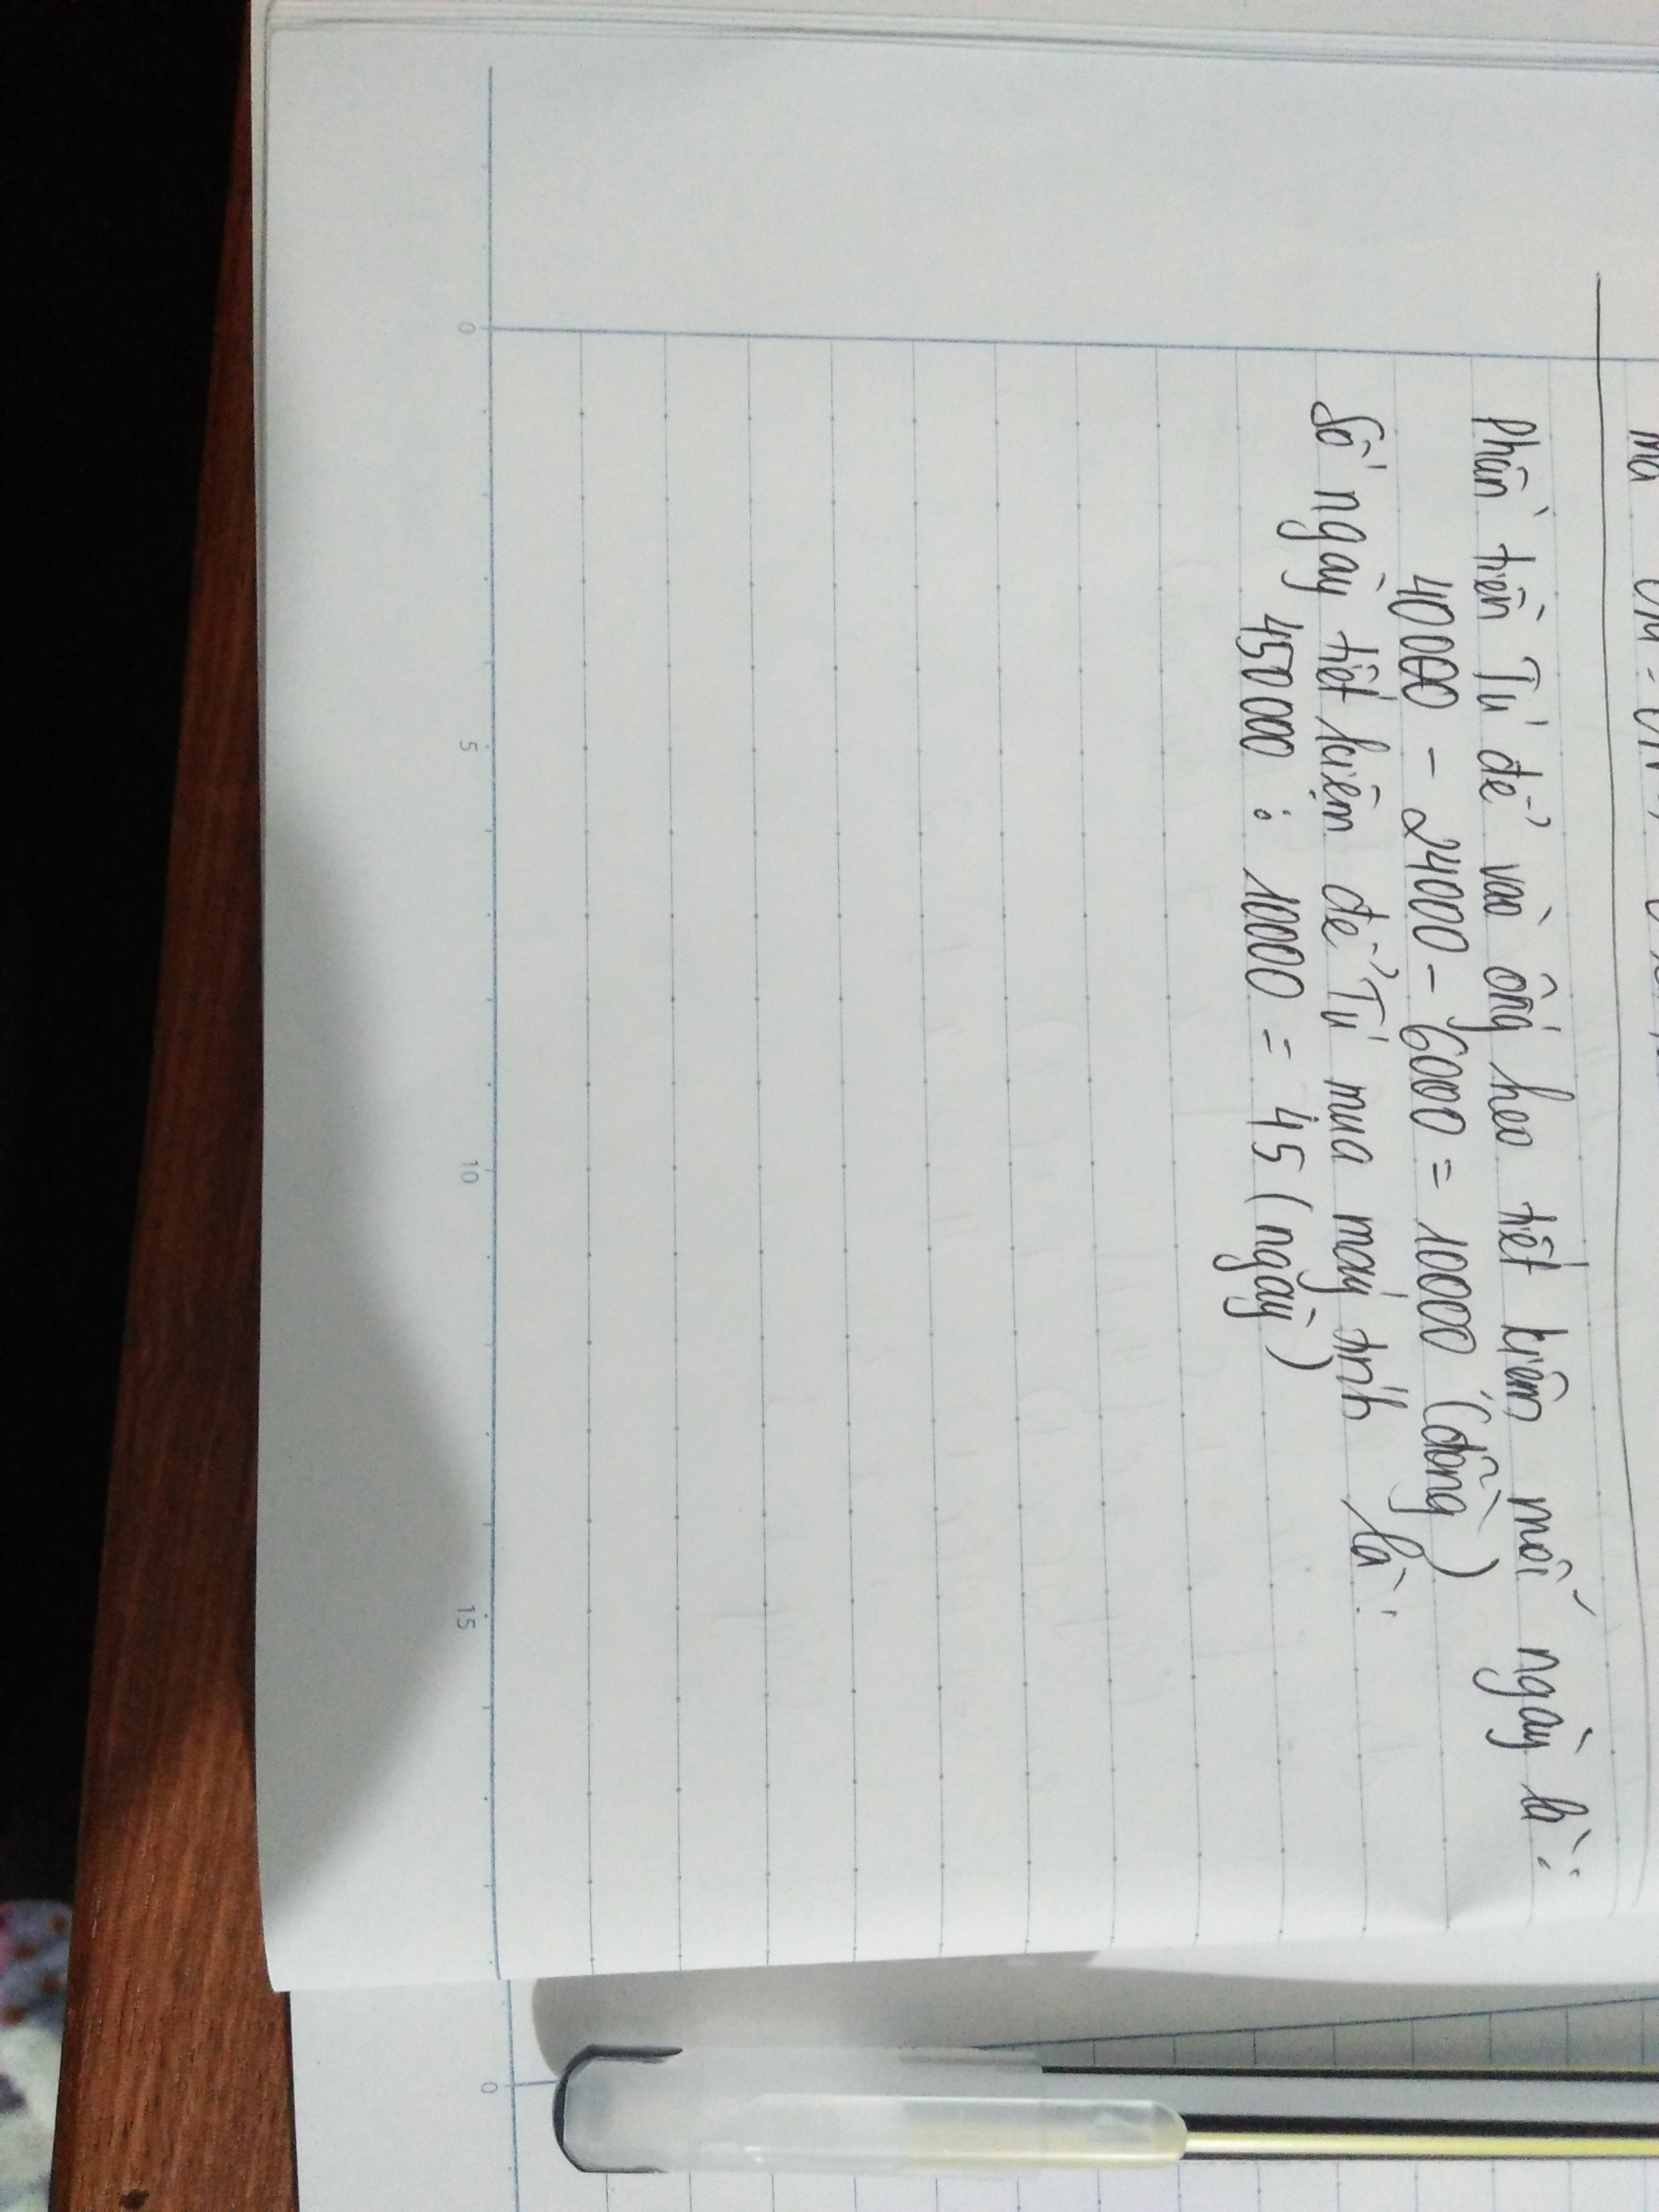 Phần tiền Tú để vào ống heo tiết kiệm mỗi ngày là:
40000 - 24000 - 6000 = 10000 (đồng)
Số ngày tiết kiệm để Tú mua máy tính là:
450000 : 10000 = 45 (ngày)
0 5 10 15
0